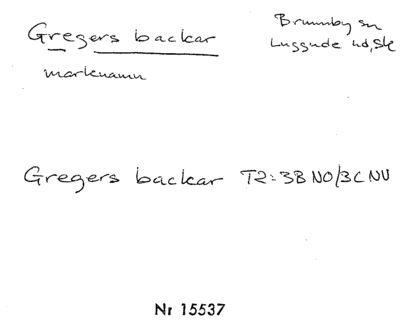 Gregers backar
Brunnby sn
Luggude hd, Sk
marknamn
Gregers backar T2: 3B NO/3C NV
Nr 15537